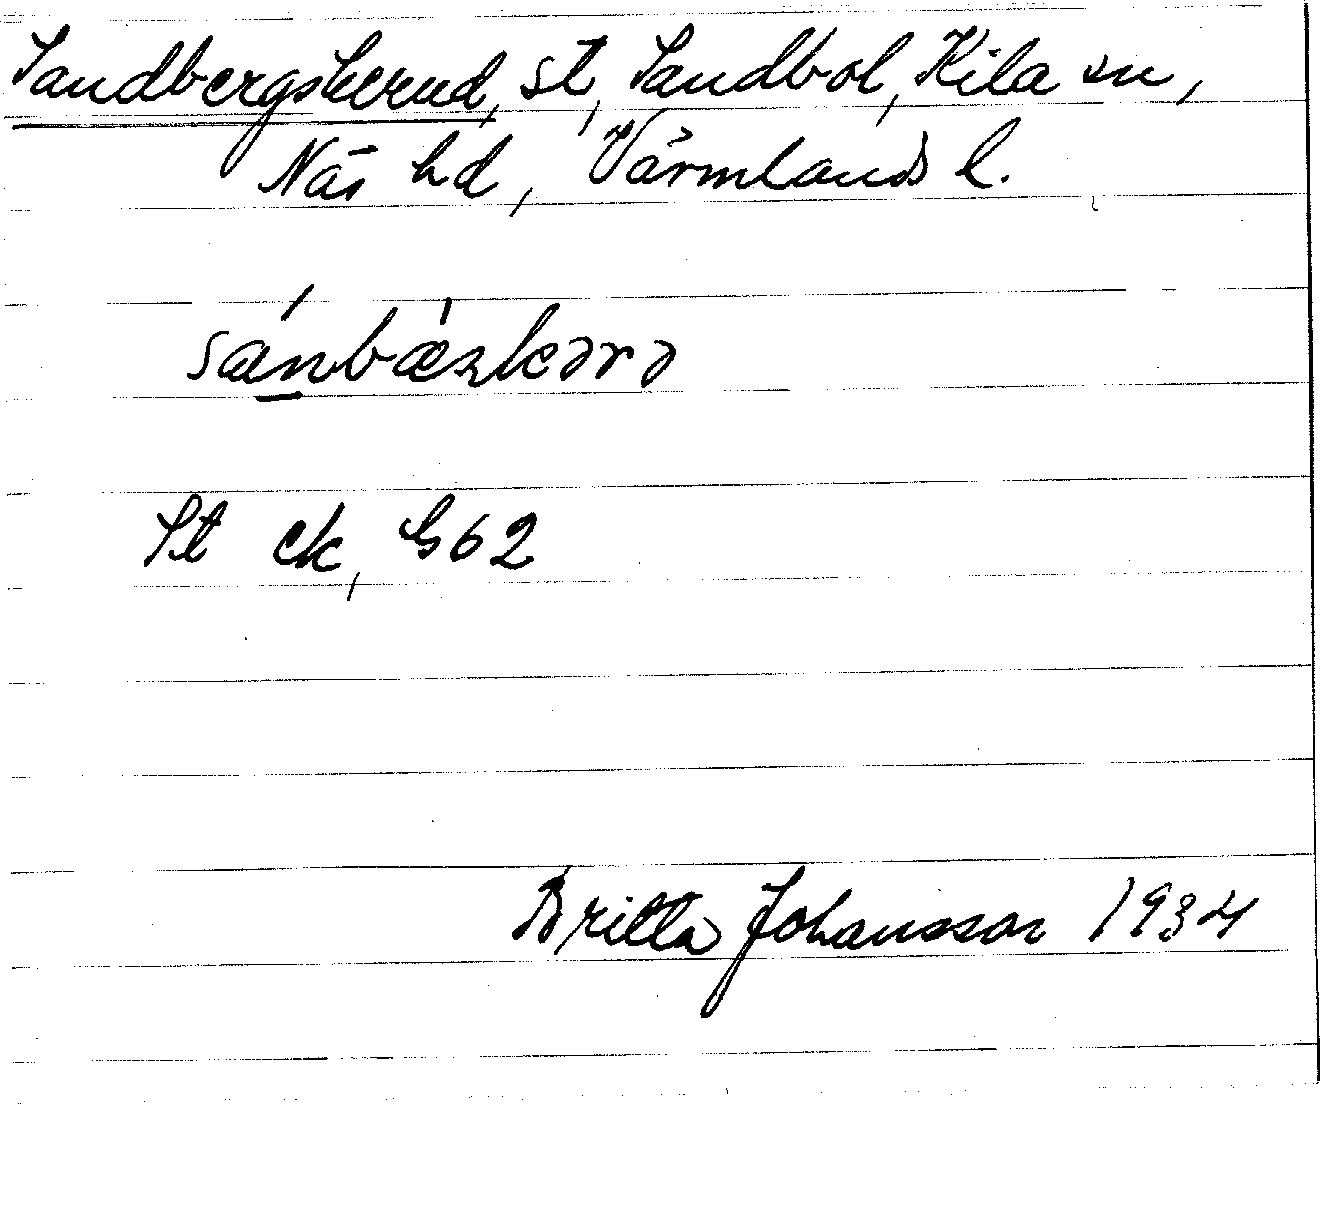 Sandbergskerud, st, Sandbol, Kila sn,
Näs hd, Värmlands l.
sánbæ̀skərə
St ek, G62
Britta Johansson 1934